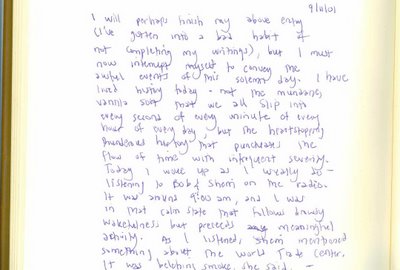 9/11/01
I will perhaps finish my above entry
(I've gotten into a bad habit of
not completing my writings), but I must
now interrupt myself to convey the
awful events of this solemn day. I have
lived history today - not the mundane,
vanilla sort that we all slip into
every second of every minute of every
hour of every day, but the heartstopping
thunderous history that punctuates the
flow of time with infrequent severity.
Today I woke up as I usually do -
listening to Bob & Sheri on the radio.
It was around 9:00 am, and I was
in that calm state that follows drowsy
wakefulness but precedes meaningful
activity. As I listened, Sheri mentioned
something about the World Trade Center.
It was belching smoke, she said. -